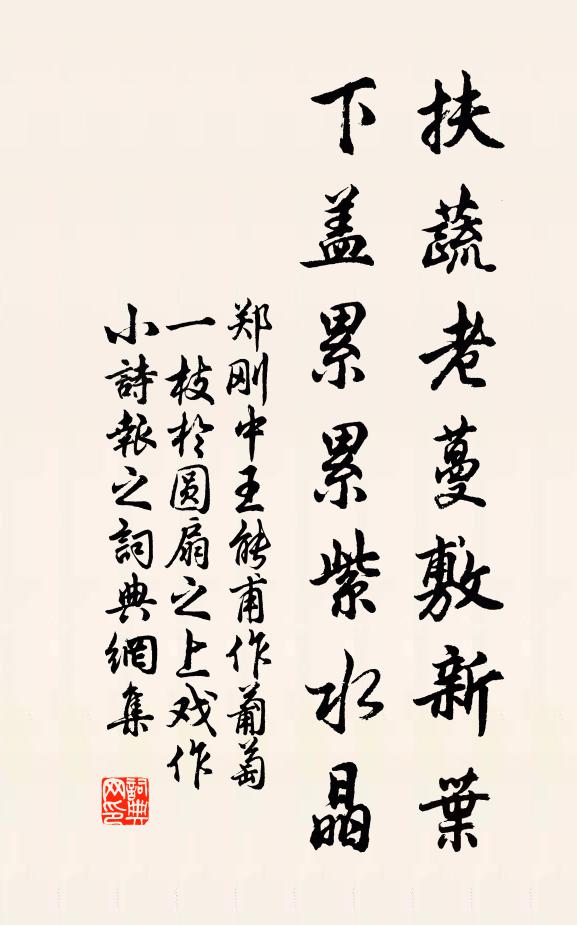 扶蔬老蔓敷新葉
下盖累累紫水晶
郑刚中王能甫作葡萄
一枝於圆扇之上戏作
小詩報之詞典網集
詞典网印